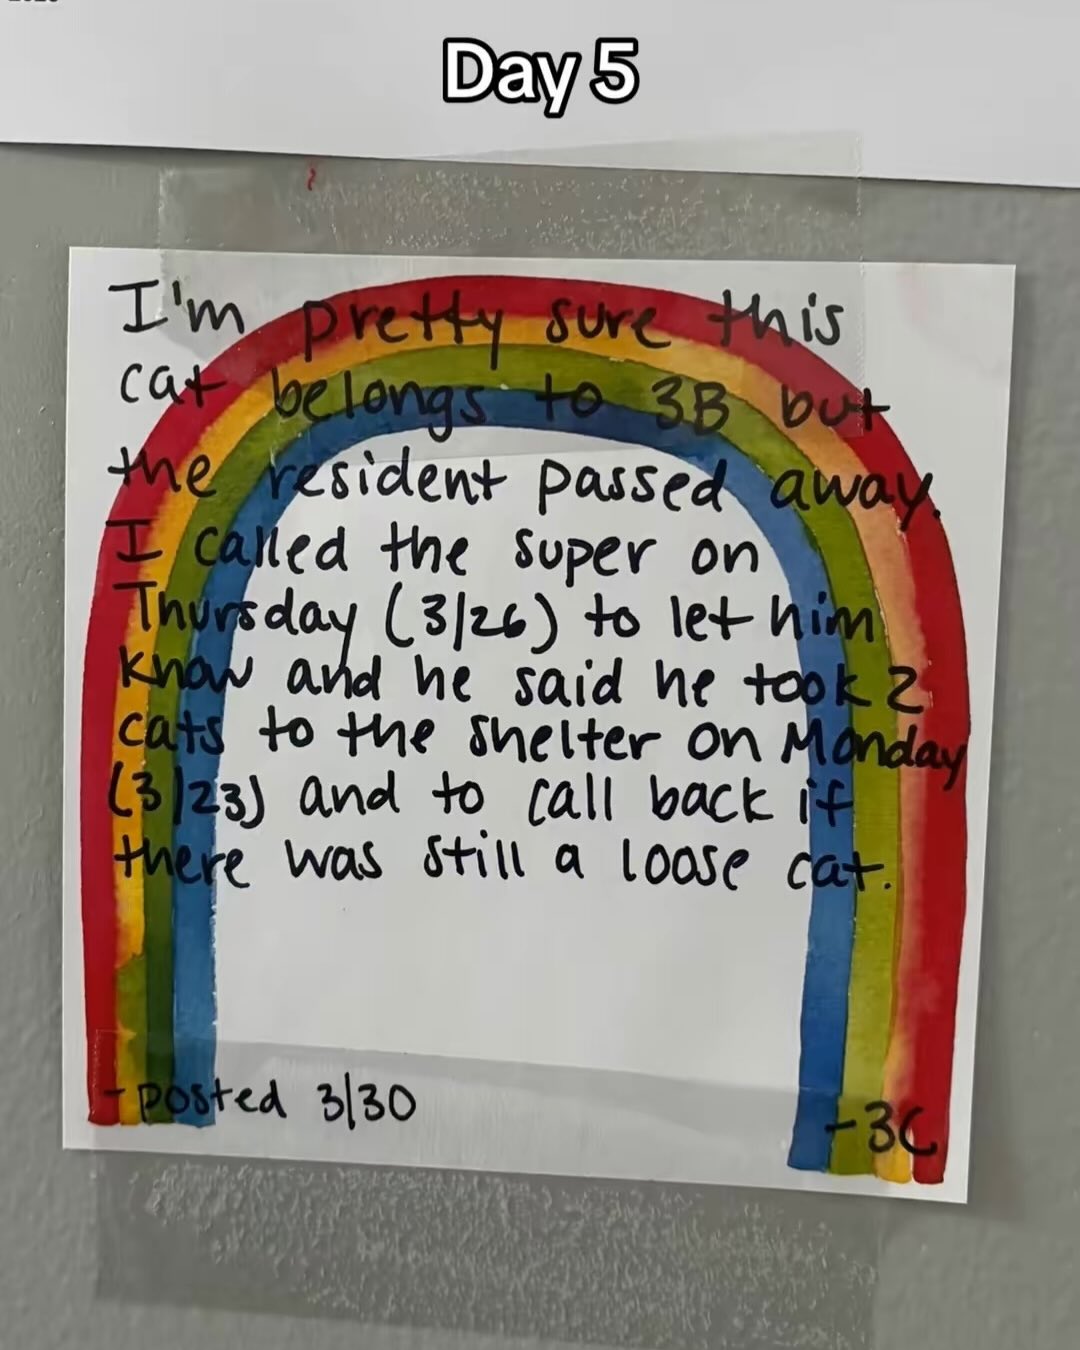 Day 5
I'm pretty sure this
cat belongs to 3B but
the resident passed away.
I called the super on
Thursday (3/26) to let him
know and he said he took 2
cats to the shelter on Monday
(3/23) and to call back if
there was still a loose cat.
-posted 3/30
-3C